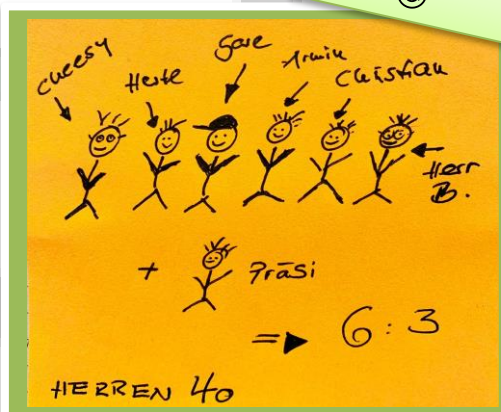 cheesy
Herte
Gore
Armin
Christian
Herr
B.
+ Präsi
=> 6:3
HERREN 40